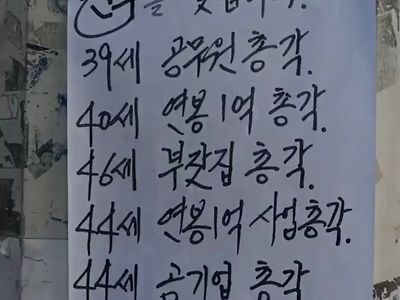 39세 공무원 총각.
40세 연봉 1억 총각.
46세 부잣집 총각.
44세 연봉1억 사업총각.
44세 공기업 총각